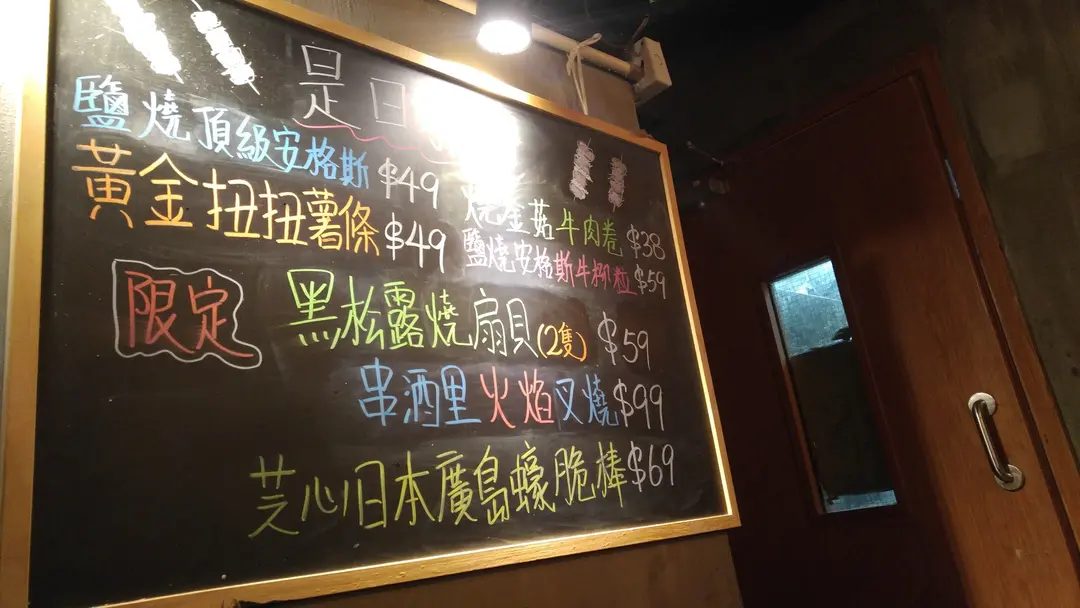 是日
鹽燒頂級安格斯 $49
黃金扭扭薯條 $49
燒金菇牛肉卷 $38
鹽燒安格斯牛柳粒 $59
限定
黑松露燒扇貝(2隻) $59
串酒里火焰叉燒 $99
芝心日本廣島蠔脆棒 $69